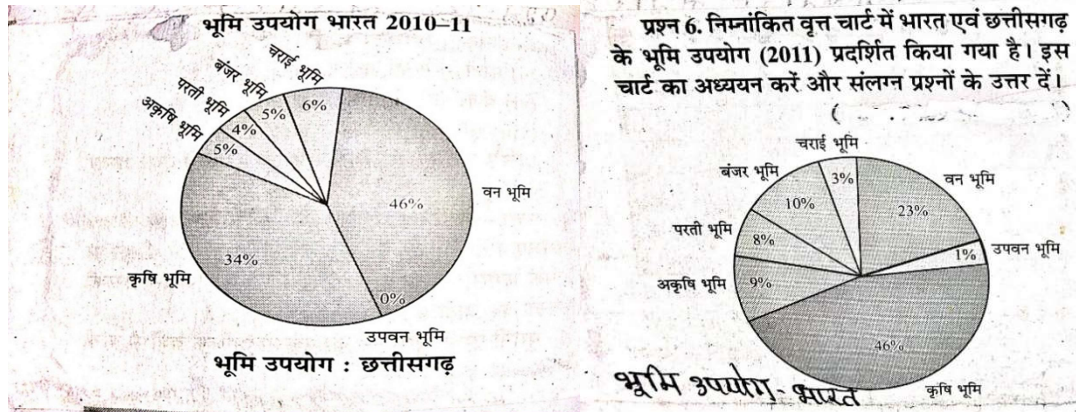 भूमि उपयोग भारत 2010–11
चराई भूमि
बंजर भूमि
परती भूमि
अकृषि भूमि
6%
5%
4%
5%
46%
वन भूमि
34%
कृषि भूमि
0%
उपवन भूमि
भूमि उपयोग : छत्तीसगढ़
प्रश्न 6. निम्नांकित वृत्त चार्ट में भारत एवं छत्तीसगढ़
के भूमि उपयोग (2011) प्रदर्शित किया गया है। इस
चार्ट का अध्ययन करें और संलग्न प्रश्नों के उत्तर दें।
चराई भूमि
बंजर भूमि
3%
वन भूमि
10%
23%
परती भूमि
8%
1%
उपवन भूमि
अकृषि भूमि
9%
46%
कृषि भूमि
भूमि उपयोग- भारत